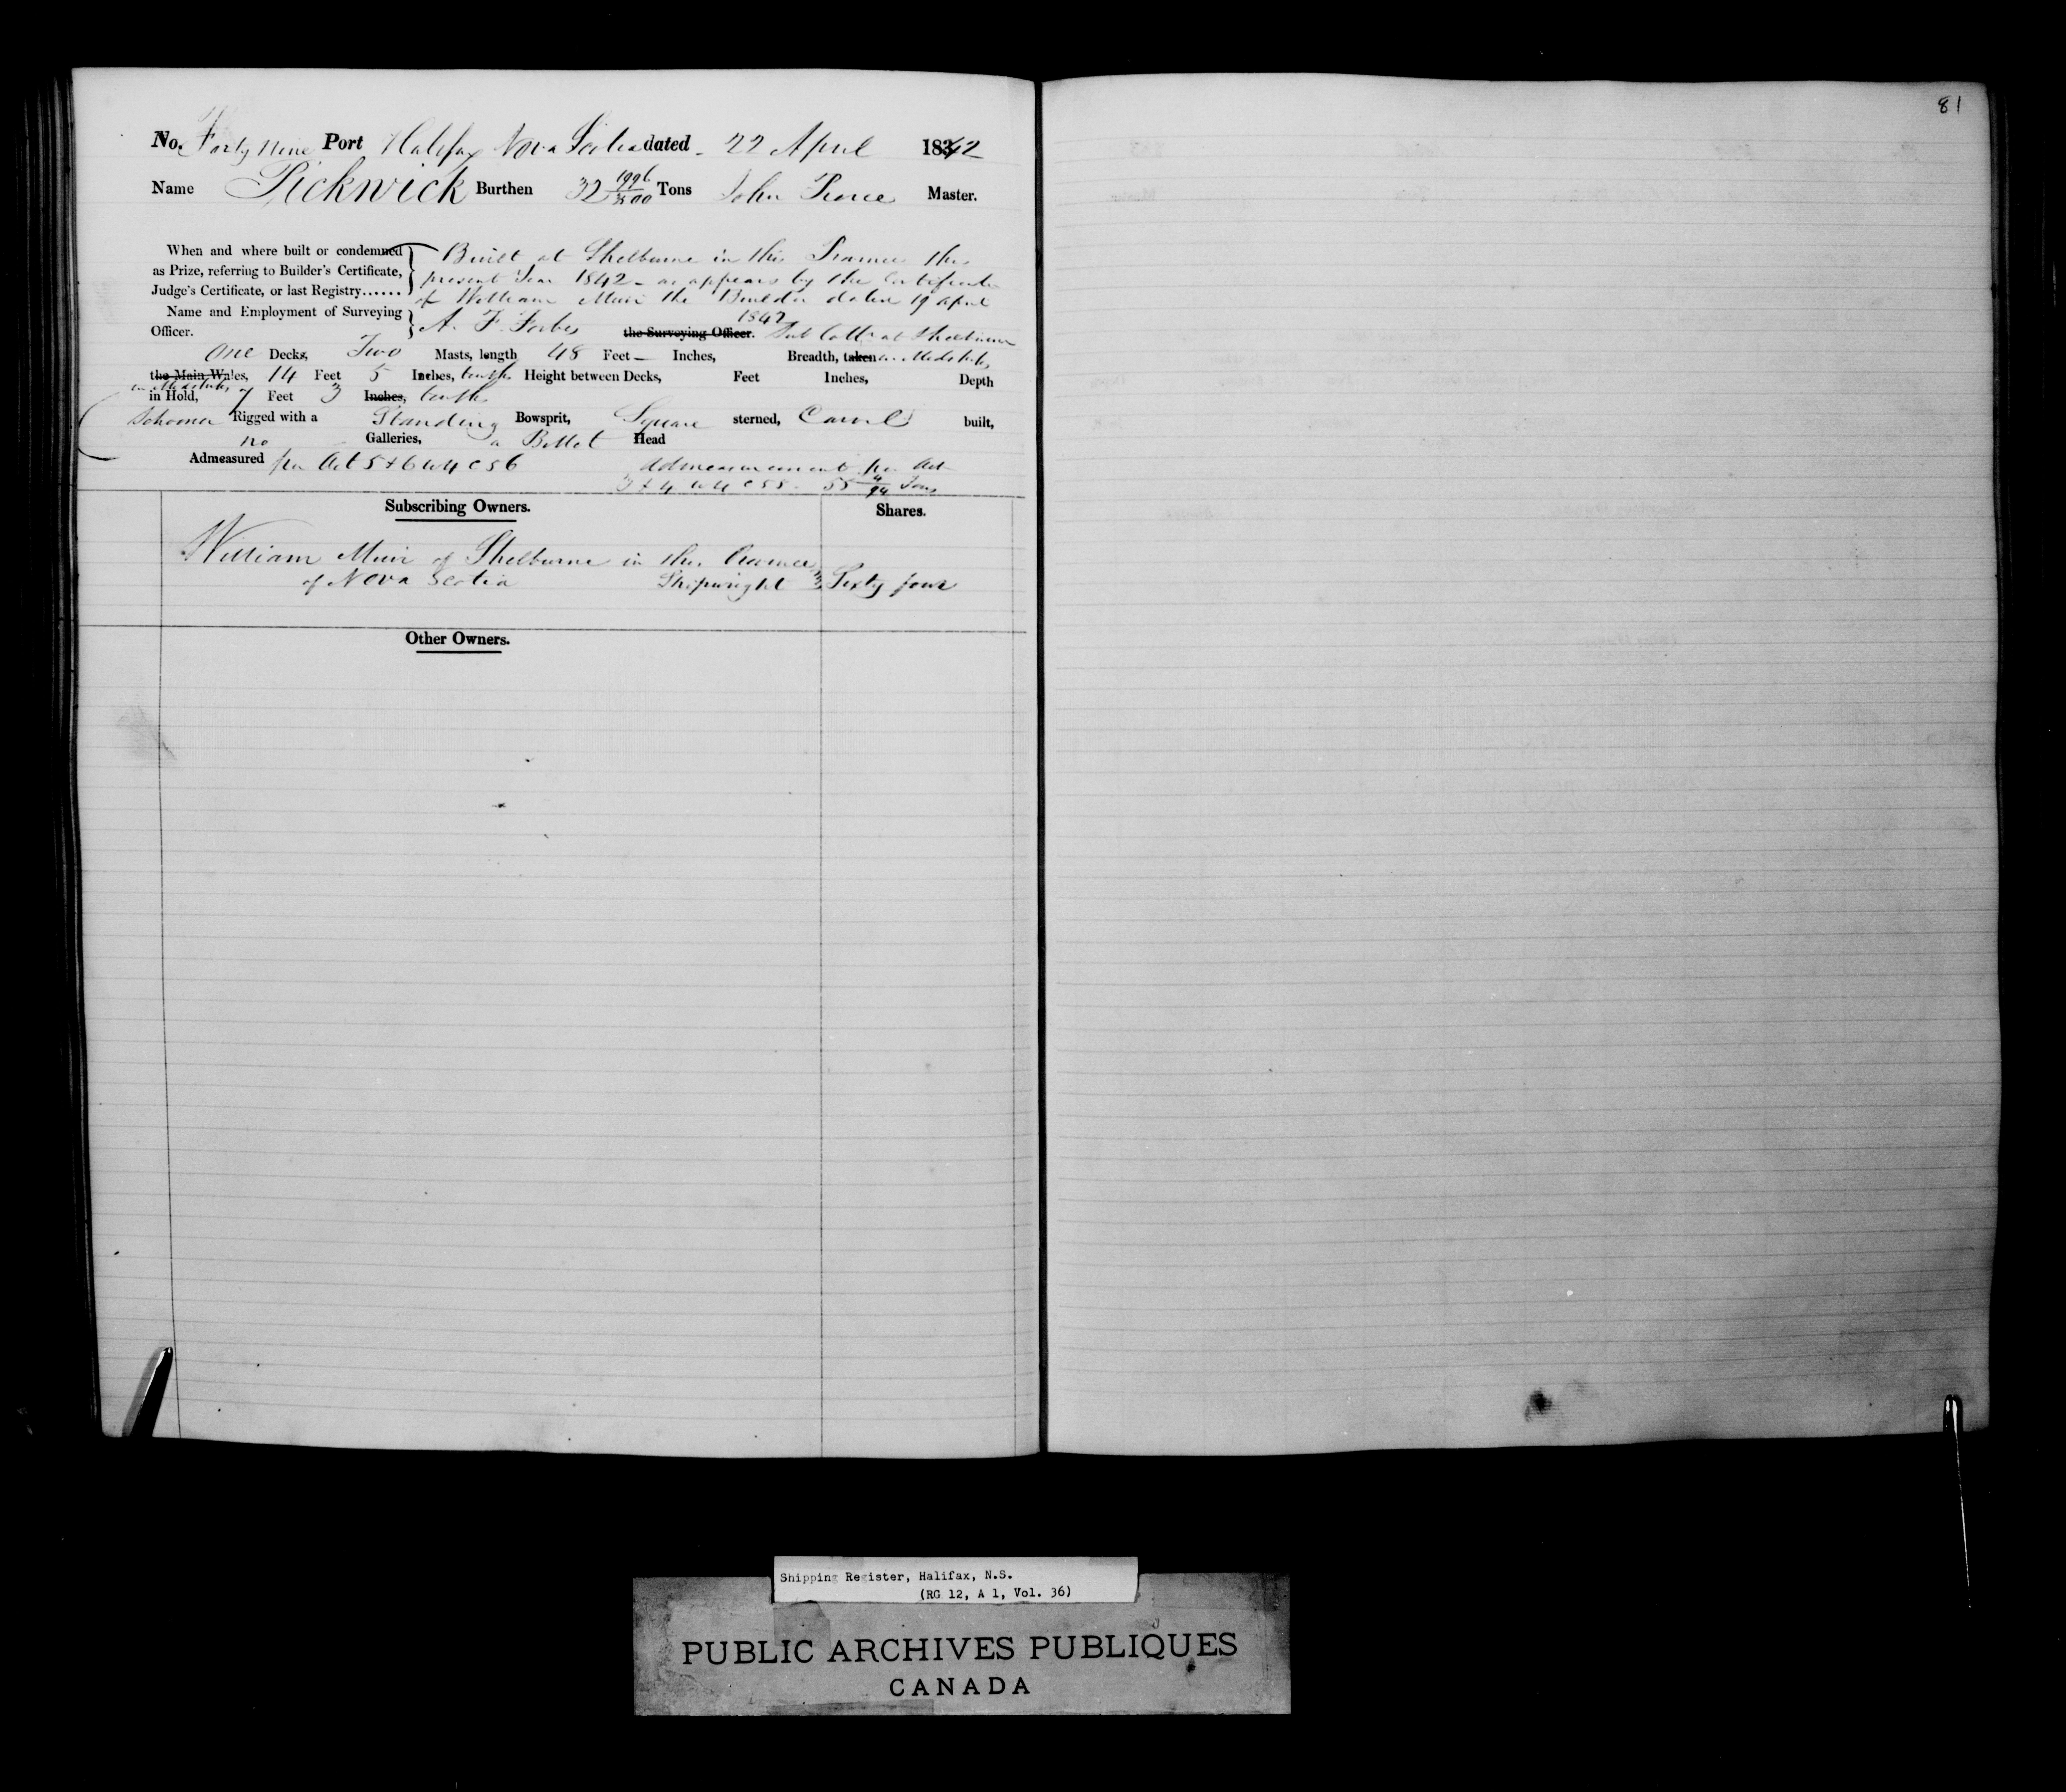 81
No. Forty Nine Port Halifax Nova Scotia dated - 22 April 1842
Name Pickwick Burthen 32 1996/3500 Tons John Pearce Master.
When and where built or condemned Built at Shelburne in this Province the
as Prize, referring to Builder's Certificate, present Year 1842 - as appears by the Certificate
Judge's Certificate, or last Registry...... of William Muir the Builder dated 19 April
1842
Name and Employment of Surveying A. F. Forbes the Surveying Officer. Sub Collr at Shelburne
Officer.
One Decks, Two Masts, length 48 Feet — Inches, Breadth, taken in Midships
the Main Wales, 14 Feet 5 Inches, tenths Height between Decks, Feet Inches, Depth
in Midships
in Hold, 7 Feet 3 Inches, tenths
Schooner Rigged with a Standing Bowsprit, Square sterned, Carvel built,
no Galleries, a Billet Head
Admeasured per Act 5 & 6 W 4 C 56 admeasurement per Act
3 & 4 W 4 C 55 - 55 4/94 Tons
Subscribing Owners. Shares.
William Muir of Shelburne in the Province
of Nova Scotia Shipwright Sixty four
Other Owners.
Shipping Register, Halifax, N.S.
(RG 12, A 1, Vol. 36)
PUBLIC ARCHIVES PUBLIQUES
CANADA